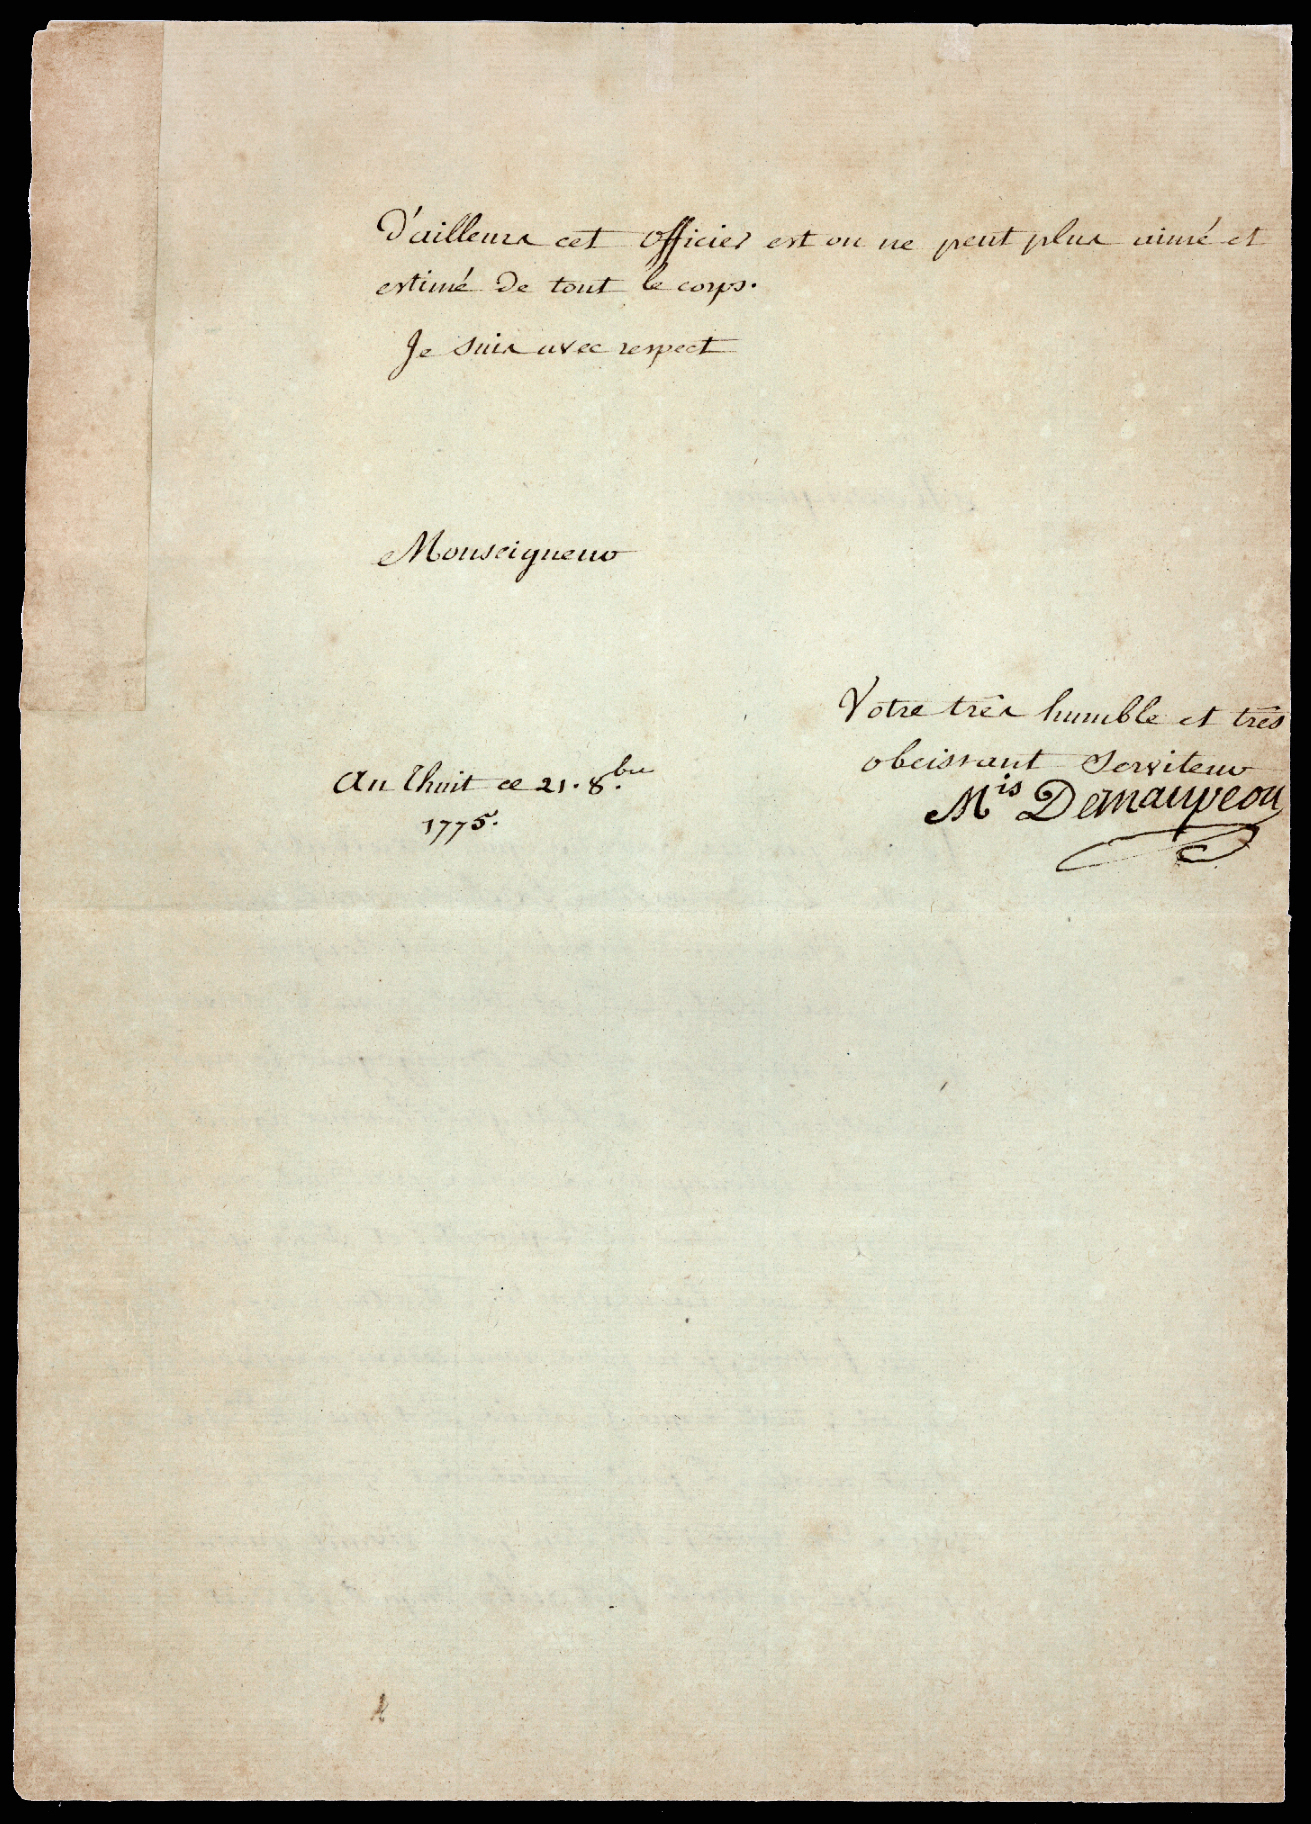 D'ailleurs cet officier est on ne peut plus aimé et
estimé de tout le corps.
Je suis avec respect
Monseigneur
Votre très humble et très
obeissant Serviteur
Au Thuit ce 21. 8.bre
1775.
Mis Demaupeou